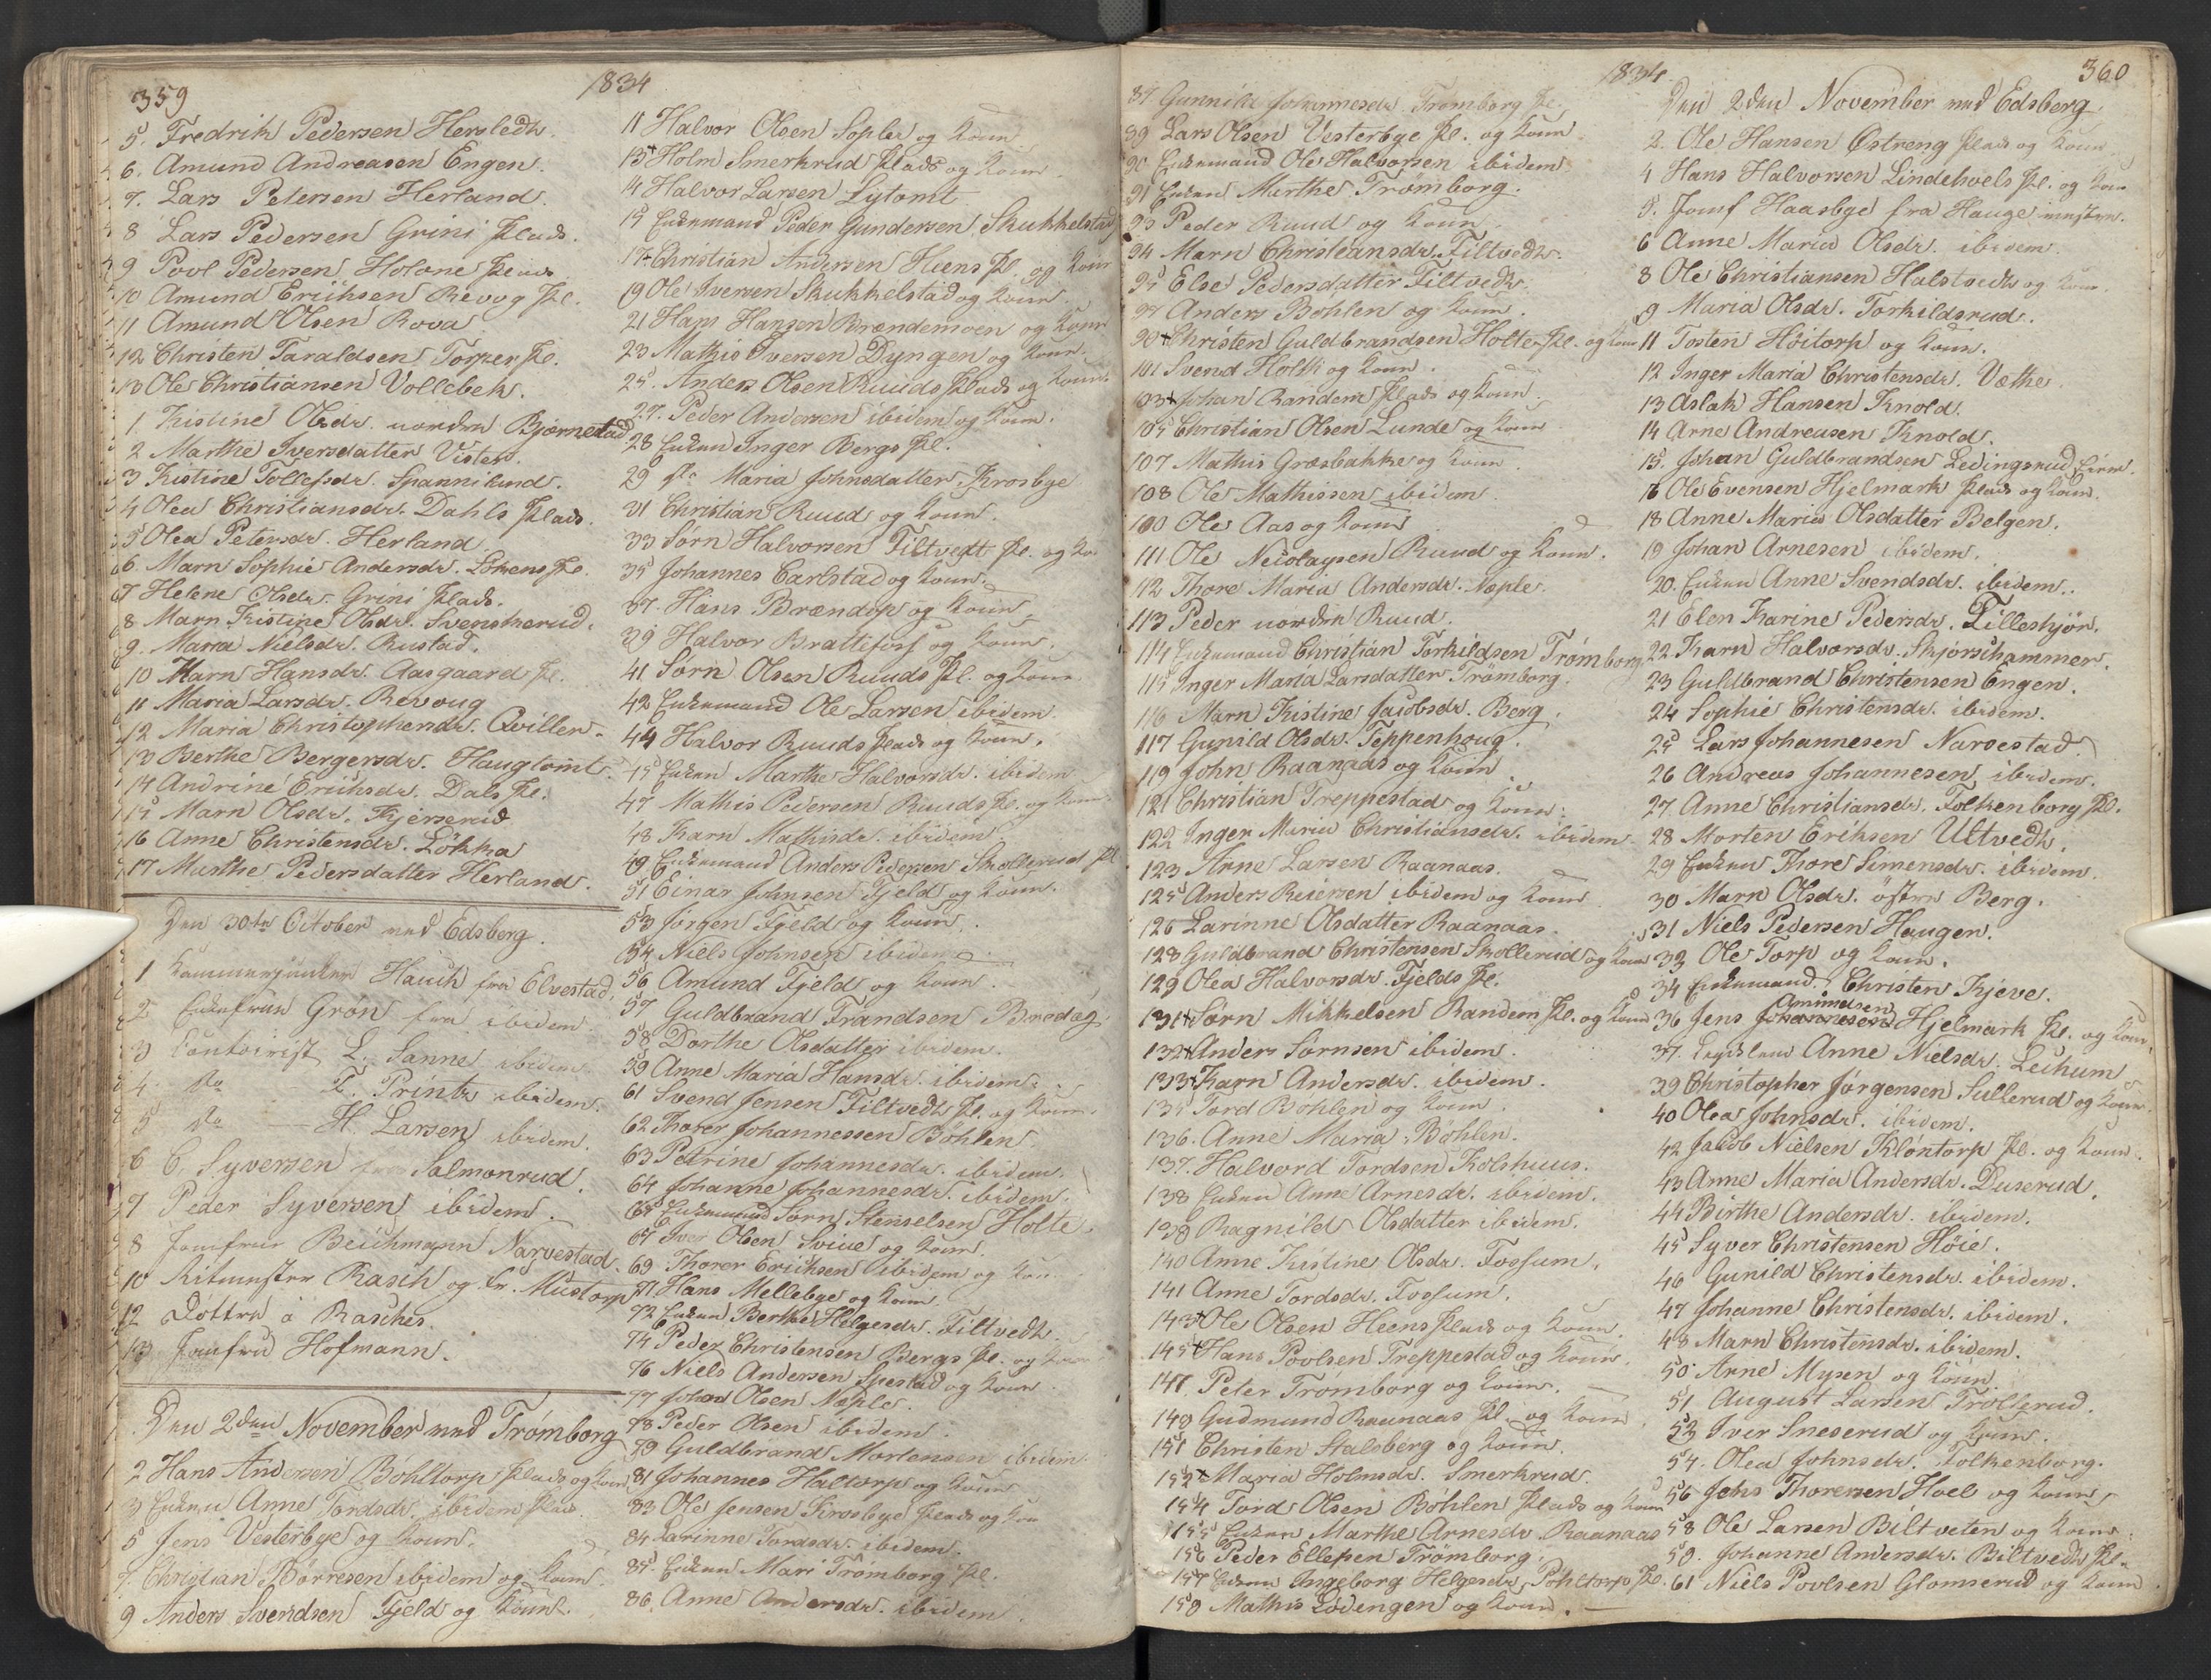 359
1834
5. Fredrik Pedersen Hersledth.
6. Amund Andreasen Engen.
7. Lars Petersen Herland.
8 Lars Pedersen Grini Plads.
9 Povl Pedersen Holone Plads
10 Amund Erichsen Revog Pl.
11 Amund Olsen Rova
12 Christen Taraldsen Torper Pl.
13 Ole Christiansen Vollebek.
1. Kistine Olsdr. nordre Bjørnestad
2 Marthe Iversdatter Vister.
3 Kistine Tollefsdr. Spannilund.
4 Olea Christiansdr. Dahls Plads.
5 Olea Petersdr. Herland
6. Marn Sophie Andersdr. Løkens Pl.
7 Helene Olsdr. Grini Plads.
8 Marn Kistine Olsdr. Svenskerud.
9. Maria Nielsdr. Rustad.
10 Marn Hansdr. Aasgaard Pl.
11 Maria Larsdr. Revoug
12 Maria Christophersdr. Qviller.
13 Berthe Bergersdr. Haugtomt.
14 Andrine Erichsdr. Dals Pl.
15 Marn Olsdr. Kjerserud
16 Anne Christensdr. Løkka
17 Marthe Pedersdatter Herland.
Den 30te October ved Edsberg.
1 Kammerjunker Hauch fra Elvestad.
2 Enkefrue Grøn fra ibidem.
3 Contoirist L. Sanne ibidem
4. do F. Printz ibidem.
5 do H. Larsen ibidem.
6 C. Syversen fra Salmonrud.
7 Peder Syversen ibidem.
8 Jomfrue Beichmann Narvestad.
10 Ritmester Rasch og Fr. Mustorp
12 Døttre a Rasches.
13 Jomfrue Hofmann.
Den 2den November ved Trømborg
2 Hans Andersen Bøhltorp Plads og Kone
3 Enken Anne Tordsdr. ibidem Plads
5 Jens Vesterbye og Kone.
7. Christian Børresen ibidem og Kone
9 Anders Svendsen Fjeld og Kone.
11 Halvor Olsen Sopler og Kone
13+ Holm Smerkrud Plads og Kone
14 Halvor Larsen Lytomt
15 Enkemand Peder Gundersen Skukkelstad
17+ Christian Andersen Heens Pl. og Kone
19 Ole Iversen Skukkelstad og Kone
21 Hans Hansen Brændemoen og Kone
23 Mathis Iversen Dyngen og Kone.
25. Anders Olsen Ruuds Plads og Kone
27. Peder Andersen ibidem og Kone.
28 Enken Inger Bergs Pl.
29 Pe Maria Johnsdatter Krosbye
31 Christian Ruud og Kone.
33 Sørn Halvorsen Tiltvedt Pl. og Ko
35 Johannes Carlstad og Kone.
37. Hans Brændop og Kone
39 Halvor Brattifosf og Kone.
41 Sørn Olsen Ruuds Pl. og Kone
42 Enkemand Ole Larsen ibidem
44 Halvor Ruuds Plads og Kone.
45 Enken Marthe Halvorsdr. ibidem
47 Mathis Pedersen Ruuds Pl. og Kone.
48 Karn Mathisdr. ibidem.
49 Enkemand Anders Pedersen Skollerud Pl
51 Einar Johnsen Fjeld og Kone.
53 Jørgen Fjeld og Kone
54 Niels Johnsen ibidem
56 Amund Fjeld og Kone.
57 Guldbrand Frandsen Brødag.
58 Dorthe Olsdatter ibidem.
59 Anne Maria Hansdr. ibidem.
61 Svend Jensen Tiltvedt Pl. og Kone.
62 Thorer Johannessen Bøhlen
63 Petrine Johannesdr. ibidem.
64 Johanne Johannesdr. ibidem.
65 Enkemand Sørn Stenselsen Holte.
67 Iver Olsen Sviue og Kone.
69 Thorer Erichsen ibidem og Kone
71 Hans Mellebye og Kone
72 Enken Berthe Helgesdr. Tiltvedt.
74 Peder Christensen Bergs Pl. og Kone
76 Niels Andersen Spestad og Kone
77 Johan Olsen Næple.
78 Peder Olsen ibidem
79 Guldbrand Mortensen ibidem.
81 Johannes Haltorp og Kone
83 Ole Jensen Krosbye Plads og Kone
84 Larinne Tordsdr. ibidem.
85. Enken Mari Trømborg Pl.
86. Anne Andersdr. ibidem
1834
360
87 Gunnild Johannesdr. Trømborg Pl.
89 Lars Olsen Vesterbye Pl. og Kone
90 Enkemand Ole Halvorsen ibidem
91 Enken Marthe Trømborg.
93 Peder Ruud og Kone
94 Marn Christeansdr. Tiltvedt.
95 Else Pedersdatter Tiltvedt.
97 Anders Bøhlen og Kone.
99+ Christen Guldbrandsen Holte Pl. og Kone
101 Svend Holth og Kone.
103+ Johan Randem Plads og Kone.
105 Christian Olsen Lunde og Kone
107 Mathis Græsbakke og Kone
108 Ole Mathissen ibidem.
100 Ole Aas og Kone
111 Ole Nicolaysen Ruud og Kone.
112 Thore Maria Andersdr. Næple.
113 Peder nordre Ruud.
114 Enkemand Christian Torkildsen Trømborg
115 Inger Maria Larsdatter Trømborg.
116 Marn Kistine Jacobsdr. Berg.
117 Gunild Olsdr. Teppenhoug.
119 John Raanaas og Kone
121 Christian Treppestad og Kone.
122 Inger Maria Christiansdr. ibidem
123 Arne Larsen Raanaas.
125 Anders Reiersen ibidem og Kone
126 Larinne Olsdatter Raanaas.
128 Guldbrand Christensen Skollerud og Kone
129 Olea Halvorsdr. Fjelds Pl.
131+ Sørn Mikkelsen Randem Pl. og Kone
132+ Anders Sørnsen ibidem.
133+ Karn Andersdr. ibidem.
135 Tord Bøhlen og Kone.
136. Anne Maria Bøhlen.
137. Halvord Tordsen Kolshuus.
138 Enken Anne Arnesdr. ibidem.
139 Ragnild Olsdatter ibidem.
140 Anne Kistine Olsdr. Fossum.
141 Anne Tordsdr. Fossum.
143+ Ole Olsen Heens Plads og Kone
145+ Hans Povlsen Treppestad og Kone.
147. Peter Trømborg og Kone.
149 Gudmund Raanaas Pl. og Kone
151 Christen Stalsberg og Kone.
152+ Maria Holmsdr. Smerkrud
154 Tord Olsen Bøhlen Plads og Kone
155 Enken Marthe Arnesdr. Raanaas
156 Peder Ellefsen Trømborg.
157 Enken Ingeborg Helgesdr. Pøhltorp Pl.
159 Mathis Lødengen og Kone.
Den 2den November ved Edsberg.
2. Ole Hansen Østreng Plads og Kone
4 Hans Halvorsen Lindehoels Pl. og Kone
5. Jomf Haasbye fra Hauge
6 Anne Maria Olsdr. ibidem.
8 Ole Christiansen Halstvedt og Kone.
9 Maria Olsdr. Torkildsrud.
11 Tosten Høitorp og Kone.
12 Inger Maria Christensdr. Væthe.
13 Aslak Hansen Knold.
14 Arne Andreasen Knold.
15. Johan Guldbrandsen Ledingsrud
16 Ole Evensen Hjelmark Plads og Kone.
18 Anne Maria Olsdatter Belgen.
19 Johan Arnesen ibidem.
20. Enken Anne Svendsdr. ibidem.
21 Elen Karine Pedersdr. Tilleshjør.
22 Karn Halvorsdr. Skjørshammer.
23 Guldbrand Christensen Engen.
24 Sophie Christensdr. ibidem.
25 Lars Johannesen Narvestad
26 Andreas Johannesen ibidem.
27. Anne Christiansdr. Folkenborg Pl.
28 Morten Eriksen Ultvedt.
29 Enken Thore Simensdr. ibidem.
30 Marn Olsdr. østre Berg.
31 Niels Pedersen Haugen.
33 Ole Torp og Kone.
34 Enkemand Christen Kjeve.
Amundsen
36 Jens Johannesen Hjelmark Pl. og Kone.
37. Anne Nielsdr. Lechum
39 Christopher Jørgensen Sullerud og Kone.
40 Olea Johnsdr. ibidem.
42 Jacob Nielsen Kløntorp Pl. og Kone.
43 Anne Maria Andersdr. Duserud.
44 Birthe Andersdr. ibidem.
45 Syver Christensen Høie.
46 Gunild Christensdr. ibidem.
47 Johanne Christensdr. ibidem.
48 Marn Christensdr. ibidem.
50 Arne Mysen og Kone
51 August Larsen Trollerud.
52 Iver Sneserud og Kone.
54. Olea Johnsdr. Folkenborg.
56 Johs Thoresen Hoel og Kone
58 Ole Larsen Biltveten og Kone.
59. Johanne Andersdr. Biltvedt Pl.
61 Niels Povlsen Glomserud og Kone